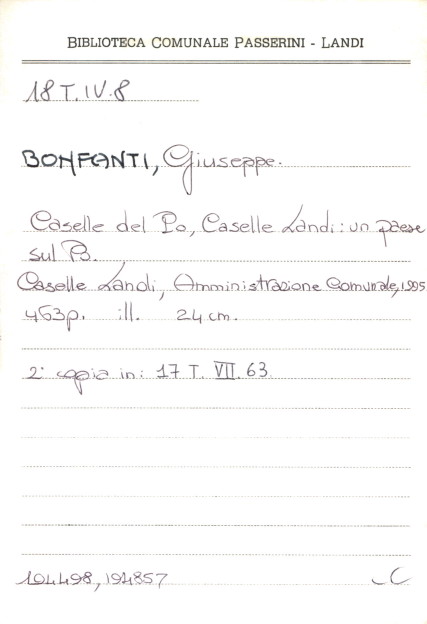 BIBLIOTECA COMUNALE PASSERINI - LANDI
18 T. IV. 8
BONFANTI, Giuseppe.
Caselle del Po, Caselle Landi: un paese
sul Po.
Caselle Landi, Amministrazione Comunale, 1995
463 p. ill. 24 cm.
2ª copia in: 17 T. VII. 63
194498, 194857